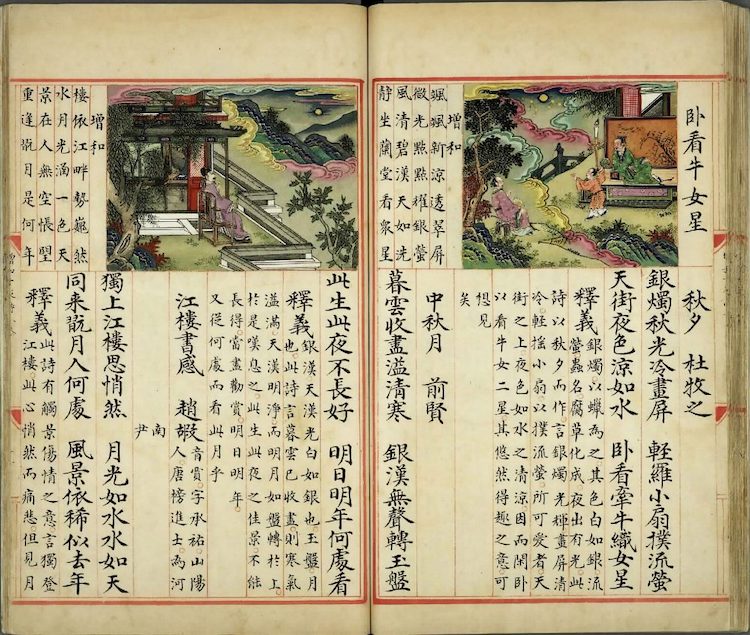 卧看牛女星
增和
颯颯新涼透翠屏
微光點點耀銀螢
風清碧漢天如洗
静坐蘭堂看衆星
秋夕 杜牧之
銀燭秋光冷畫屏 輕羅小扇撲流螢
天街夜色涼如水 卧看牽牛織女星
釋義 銀燭以蠟為之其色白如銀流
螢蟲名腐草化成夜出有光此
詩以秋夕而作言銀燭光輝畫屏清
冷輕搖小扇以撲流螢所可愛者天
街之上夜色如水之清涼因而閑卧
以看牛女二星其悠然得趣之意可
想見
矣
中秋月 前賢
暮雲收盡溢清寒 銀漢無聲轉玉盤
此生此夜不長好 明日明年何處看
釋義 銀漢天漢光白如銀也玉盤月
也此詩言暮雲已收盡則寒氣
溢滿天漢明淨而明月如盤轉於上
於是嘆息之此生此夜之佳景不能
長得當盡勸賞明日明年
又從何處而看此月乎
江樓書感 趙嘏 音賈字承祐山陽
人唐榜進士為河
南
尹
獨上江樓思悄然 月光如水水如天
同来翫月人何處 風景依稀似去年
釋義 此詩有觸景傷情之意言獨登
江樓此心悄然而痛悲但見月
增和
樓依江畔勢巍然
水月光涵一色天
景在人無空悵望
重逢翫月是何年